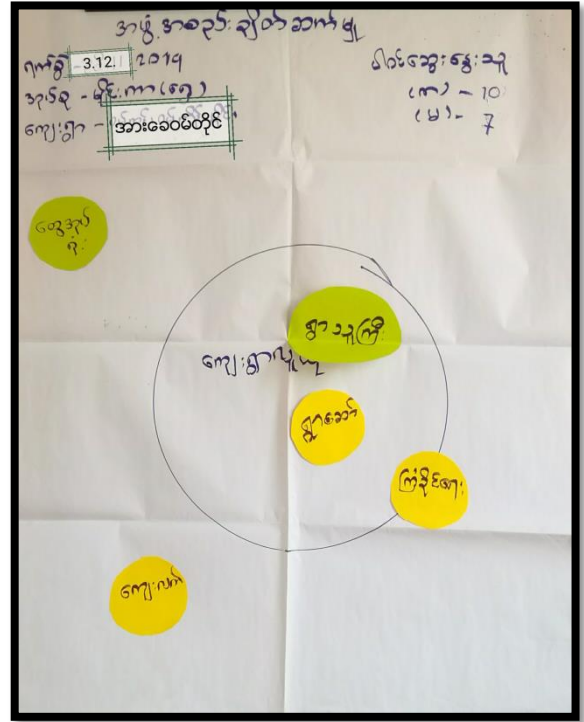 အဖွဲ့အစည်းချိတ်ဆက်မှု
ရက်စွဲ 3.12. 2019
အုပ်စု - မိုင်းကာ (၈၇)
ကျေးရွာ - အားခေဝမ်တိုင်
ပါဝင်ဆွေးနွေးသူ
(ကျား) - 10
(မ) - 7
ထွေအုပ်
ရုံး
ရွာသူကြီး
ကျေးရွာလူထု
ရွာဆော်
ကြံ့ခိုင်ရေး
ကျေးလက်